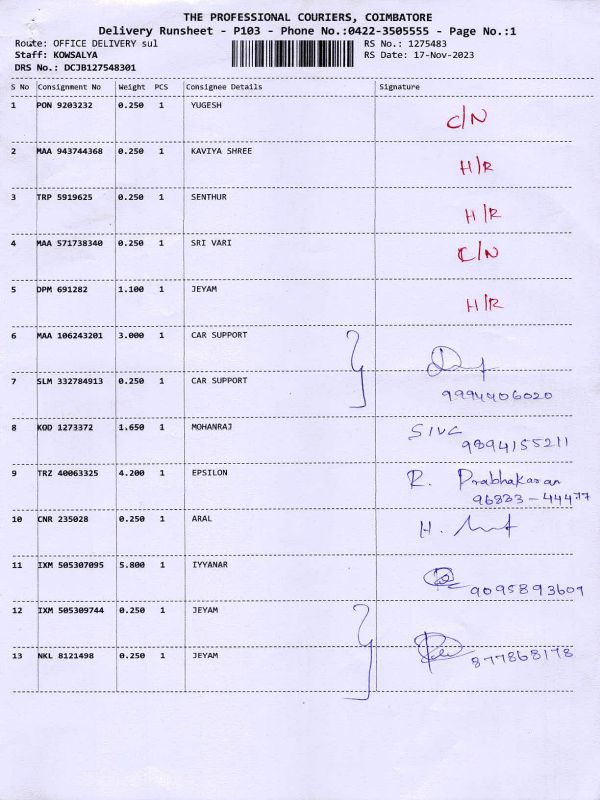 THE PROFESSIONAL COURIERS, COIMBATORE
Delivery Runsheet - P103 - Phone No.:0422-3505555 - Page No.:1
Route: OFFICE DELIVERY sul RS No.: 1275483
Staff: KOWSALYA RS Date: 17-Nov-2023
DRS No.: DCJB127548301
S No Consignment No Weight PCS Consignee Details Signature
1 PON 9203232 0.250 1 YUGESH C/N
2 MAA 943744368 0.250 1 KAVIYA SHREE H/R
3 TRP 5919625 0.250 1 SENTHUR H/R
4 MAA 571738340 0.250 1 SRI VARI C/N
5 DPM 691282 1.100 1 JEYAM H/R
6 MAA 106243201 3.000 1 CAR SUPPORT
7 SLM 332784913 0.250 1 CAR SUPPORT 9994406020
8 KOD 1273372 1.650 1 MOHANRAJ SIVC
9894155211
9 TRZ 40063325 4.200 1 EPSILON R. Prabhakaran
96833-44477
10 CNR 235028 0.250 1 ARAL H.
11 IXM 505307095 5.800 1 IYYANAR 9095893609
12 IXM 505309744 0.250 1 JEYAM
13 NKL 8121498 0.250 1 JEYAM 877868178